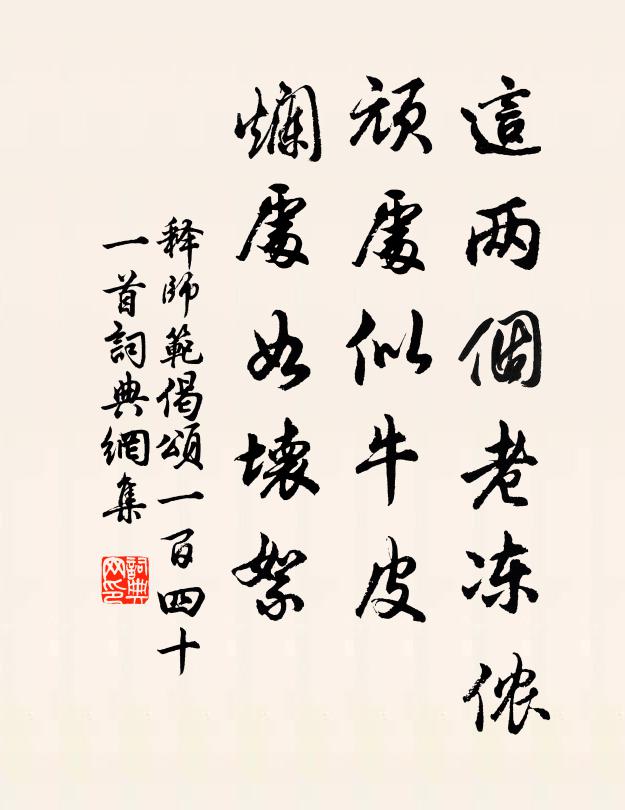 這两個老冻侬
頑處似牛皮
爛處如壞絮
释師範偈頌一百四十
一首詞典網集
詞典网印